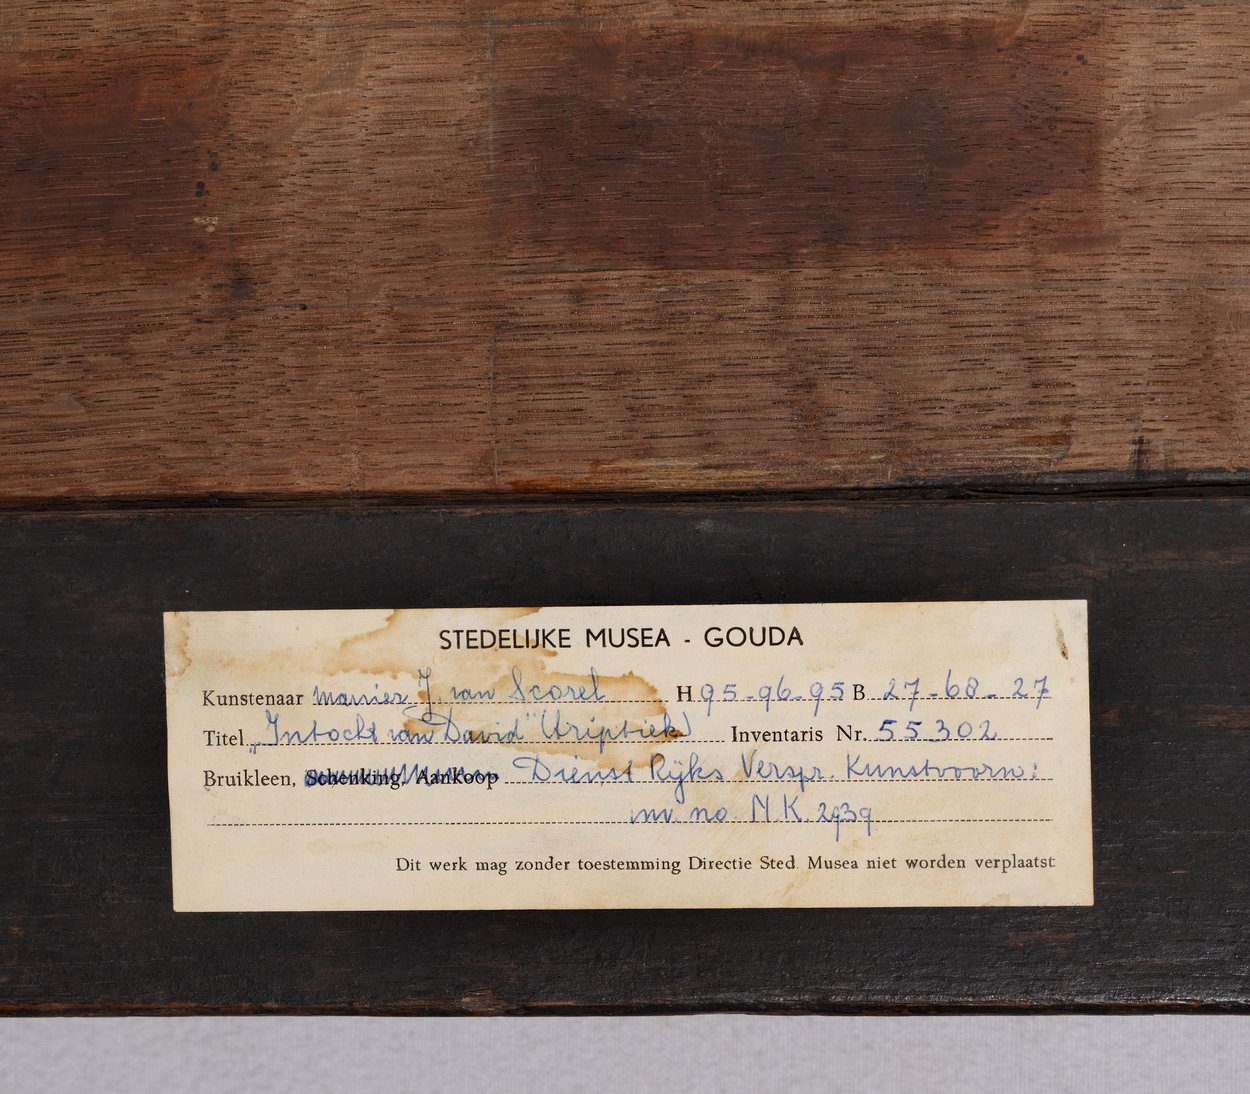 STEDELIJKE MUSEA - GOUDA
Kunstenaar manier J. van Scorel H 95-96-95 B 27-68-27
Titel „Intocht van David" (triptiek) Inventaris Nr. 55302
Bruikleen, Schenking, Aankoop Dienst Rijks Verspr. Kunstvoorw:
inv. no. N.K. 2939
Dit werk mag zonder toestemming Directie Sted. Musea niet worden verplaatst